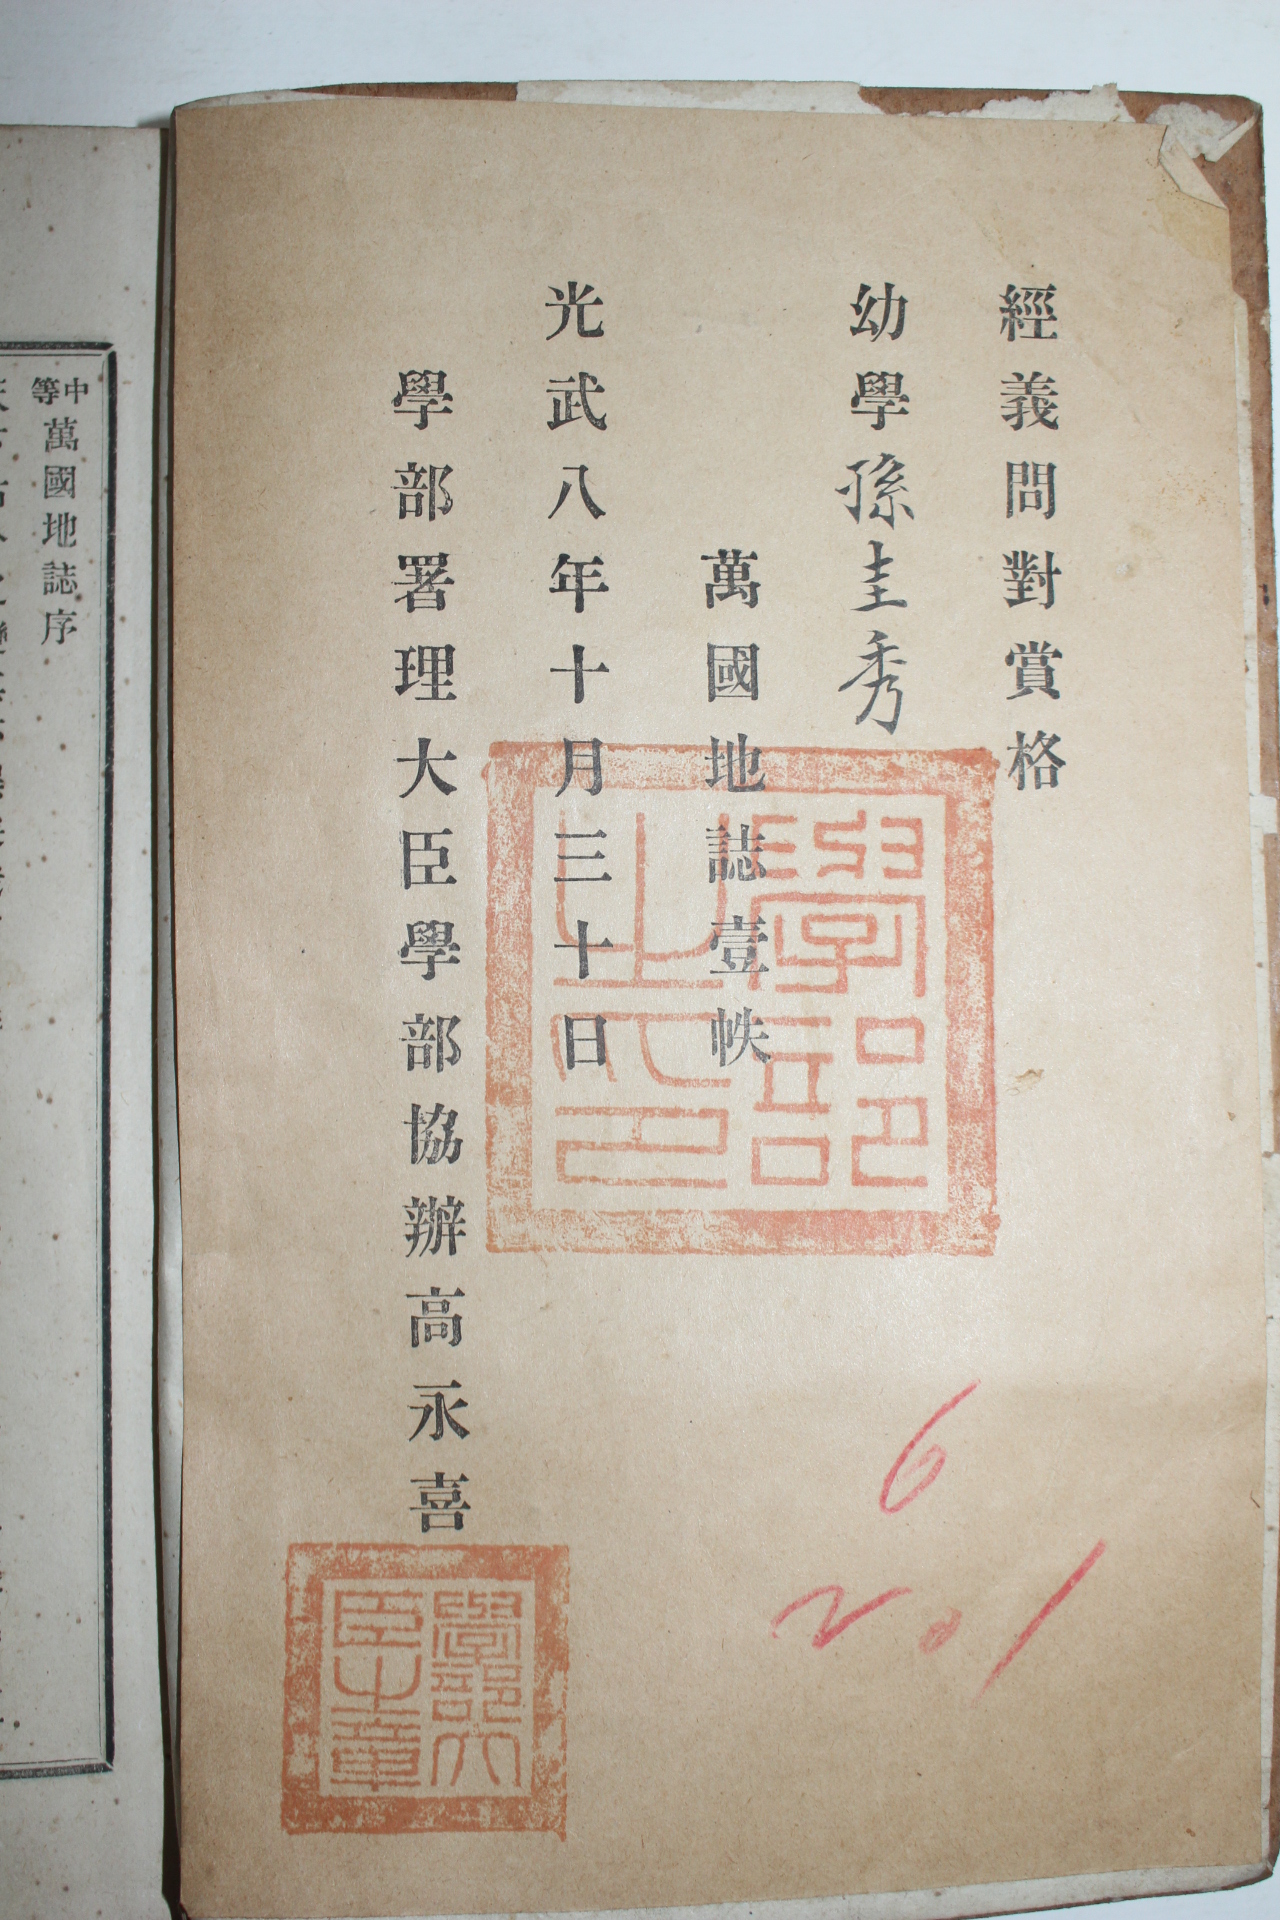 經義問對賞格
幼學孫圭秀
萬國地誌壹帙
光武八年十月三十日
學部署理大臣學部協辦高永喜
學部之印
學部大臣之章
6
中等萬國地誌序